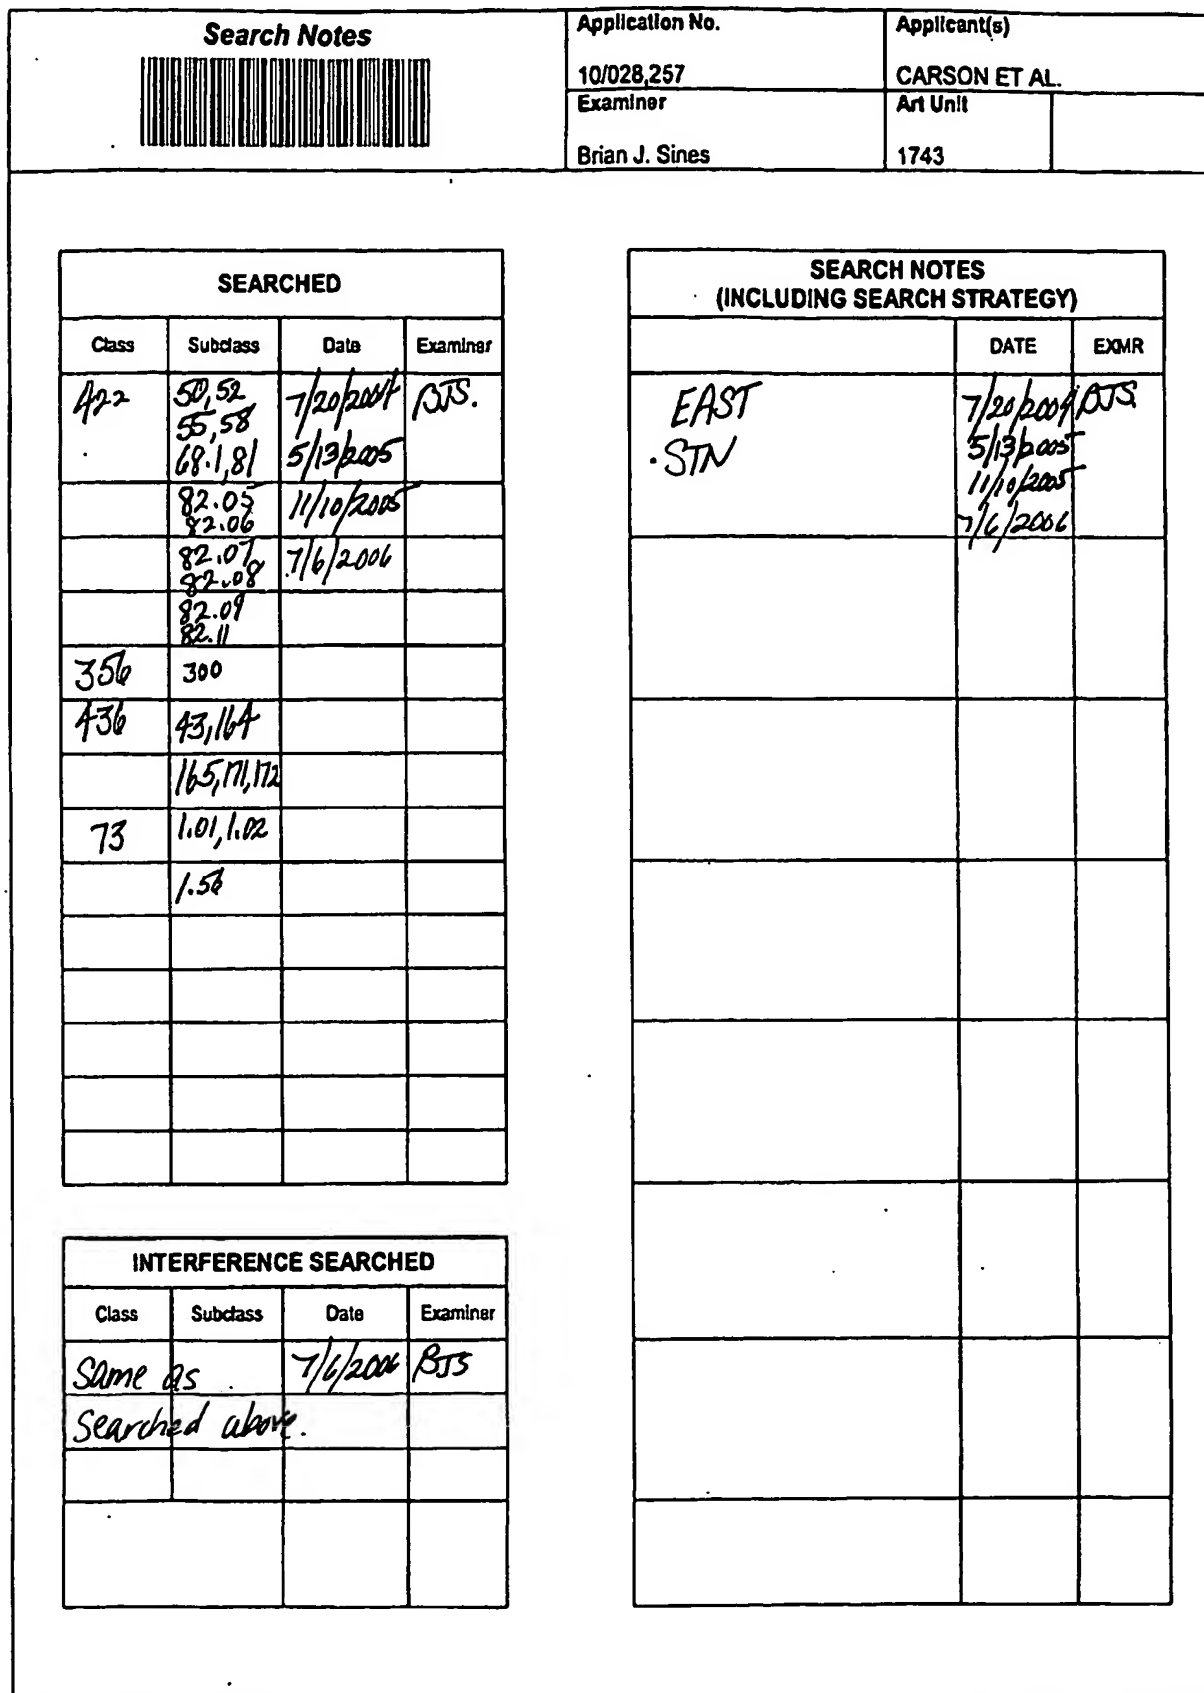 Search Notes
Application No.
10/028,257
Applicant(s)
CARSON ET AL.
Examiner
Brian J. Sines
Art Unit
1743
SEARCHED
Class Subclass Date Examiner
422 50,52 7/20/2004 BJS.
55,58
68.1,81 5/13/2005
82.05 11/10/2005
82.06
82.07 7/6/2006
82.08
82.09
82.11
356 300
436 43,164
165,171,172
73 1.01,1.02
1.56
INTERFERENCE SEARCHED
Class Subclass Date Examiner
Same as 7/6/2006 BJS
Searched above.
SEARCH NOTES
(INCLUDING SEARCH STRATEGY)
DATE EXMR
EAST 7/20/2004 BJS
STN 5/13/2005
11/10/2005
7/6/2006